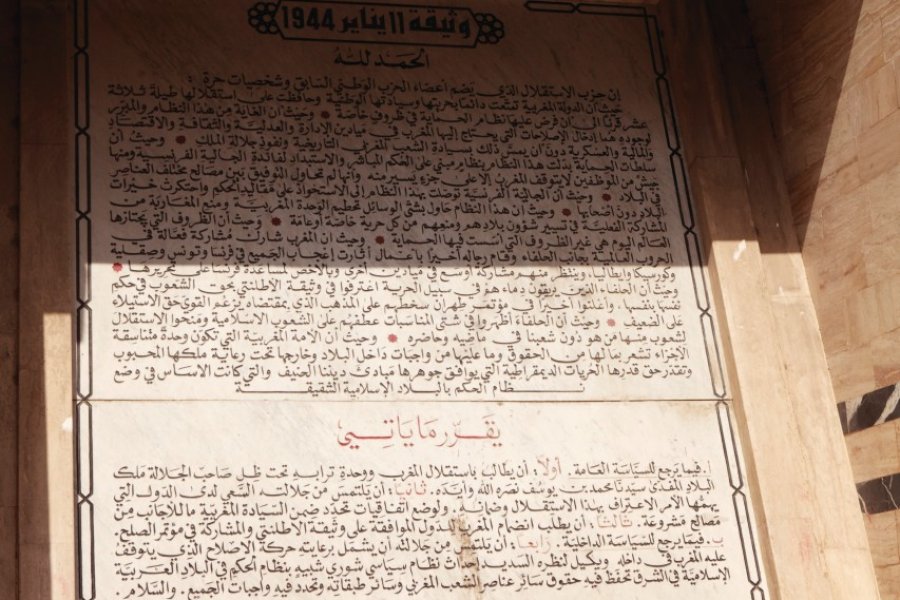 وثيقة 11 يناير 1944
الحمد لله
إن حزب الاستقلال الذي يضم أعضاء الحزب الوطني السابق وشخصيات حرة :
حيث أن الدولة المغربية تمتعت دائما بحريتها وسيادتها الوطنية وحافظت على استقلالها طيلة ثلاثة
عشر قرنا الى أن فرض عليها نظام الحماية في ظروف خاصة * وحيث أن الغاية من هذا النظام والمبرر
لوجوده هما إدخال الاصلاحات التي يحتاج إليها المغرب في ميادين الادارة والعدلية والثقافة والاقتصاد
والمالية والعسكرية دون أن يمس ذلك بسيادة الشعب المغربي التاريخية ونفوذ جلالة الملك * وحيث أن
سلطات الحماية بدلت هذا النظام بنظام مبني على الحكم المباشر والاستبداد لفائدة الجالية الفرنسية ومنها
جيش من الموظفين لا يتوقف المغرب إلا على جزء يسير منه وأنها لم تحاول التوفيق بين مصالح مختلف العناصر
في البلاد * وحيث أن الجالية الفرنسية توصلت بهذا النظام إلى الاستحواذ على مقاليد الحكم واحتكرت خيرات
البلاد دون أصحابها * وحيث إن هذا النظام حاول بشتى الوسائل تحطيم الوحدة المغربية ومنع المغاربة من
المشاركة الفعلية في تسيير شؤون بلادهم ومنعهم من كل حرية خاصة أو عامة * وحيث أن الظروف التي يجتازها
العالم اليوم هي غير الظروف التي أسست فيها الحماية * وحيث أن المغرب شارك مشاركة فعالة في
الحروب العالمية بجانب الحلفاء وقام رجاله أخيرا بأعمال أثارت إعجاب الجميع في فرنسا وتونس وصقلية
وكورسيكا وإيطاليا، وينتظر منهم مشاركة أوسع في ميادين أخرى وبالأخص لمساعدة فرنسا على تحريرها *
وحيث أن الحلفاء الذين يريقون دماءهم في سبيل الحرية اعترفوا في وثيقة الأطلنتي بحق الشعوب في حكم
نفسها بنفسها، وأعلنوا أخيرا في مؤتمر طهران سخطهم على المذهب الذي بمقتضاه يزعم القوي حق الاستيلاء
على الضعيف * وحيث أن الحلفاء أظهروا في شتى المناسبات عطفهم على الشعوب الاسلامية ومنحوا الاستقلال
لشعوب منها من هو دون شعبنا في ماضيه وحاضره * وحيث أن الأمة المغربية التي تكون وحدة متناسقة
الأجزاء تشعر بما لها من الحقوق وما عليها من واجبات داخل البلاد وخارجها تحت رعاية ملكها المحبوب
وتقدر حق قدرها الحريات الديمقراطية التي يوافق جوهرها مبادئ ديننا الحنيف والتي كانت الأساس في وضع
نظام الحكم بالبلاد الإسلامية الشقيقة
يقرر ما يأتي
أ. فيما يرجع للسياسة العامة. أولا: أن يطالب باستقلال المغرب ووحدة ترابه تحت ظل صاحب الجلالة ملك
البلاد المفدى سيدنا محمد بن يوسف نصره الله وأيده. ثانيا: أن يلتمس من جلالته السعي لدى الدول التي
يهمها الأمر الاعتراف بهذا الاستقلال وضمانه. ولوضع اتفاقيات تحدد ضمن السيادة المغربية ما للأجانب من
مصالح مشروعة. ثالثا: أن يطلب انضمام المغرب للدول الموافقة على وثيقة الأطلنتي والمشاركة في مؤتمر الصلح.
ب. فيما يرجع للسياسة الداخلية. رابعا: أن يلتمس من جلالته أن يشمل برعايته حركة الاصلاح الذي يتوقف
عليه المغرب في داخله ويكل لنظره السديد إحداث نظام سياسي شوري شبيه بنظام الحكم في البلاد العربية
الإسلامية في الشرق تحفظ فيه حقوق سائر عناصر الشعب المغربي وسائر طبقاته وتحدد فيه واجبات الجميع. والسلام.